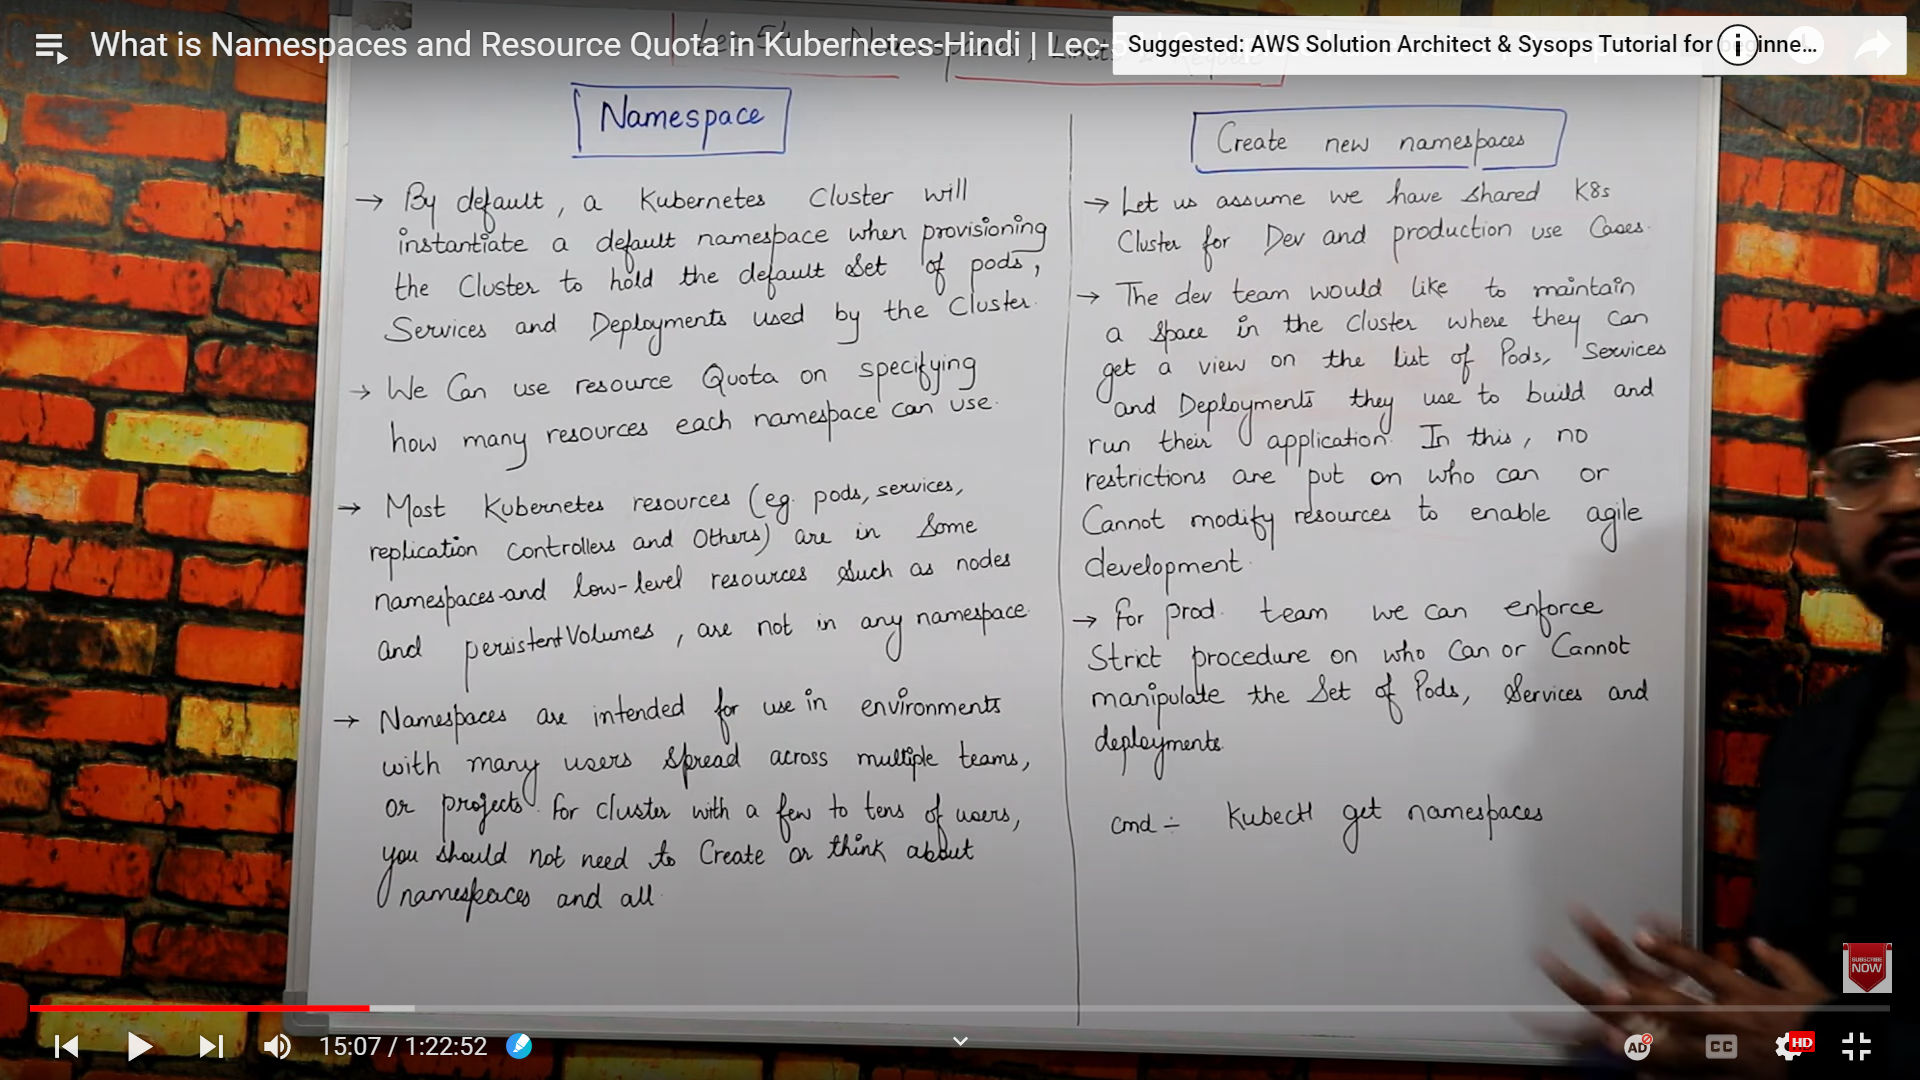 What is Namespaces and Resource Quota in Kubernetes-Hindi | Lec-5
Suggested: AWS Solution Architect & Sysops Tutorial for inne...
Namespace
→ By default, a Kubernetes Cluster will
instantiate a default namespace when provisioning
the Cluster to hold the default Set of pods,
Services and Deployments used by the Cluster.
→ We Can use resource Quota on specifying
how many resources each namespace can use.
→ Most Kubernetes resources (eg. pods, services,
replication Controllers and Others) are in Some
namespaces and low-level resources Such as nodes
and persistentVolumes, are not in any namespace.
→ Namespaces are intended for use in environments
with many users Spread across multiple teams,
or projects. For Cluster with a few to tens of users,
you should not need to Create or think about
namespaces and all.
Create new namespaces
→ Let us assume we have shared K8s
Cluster for Dev and production use Cases.
→ The dev team would like to maintain
a Space in the Cluster where they can
get a view on the list of Pods, Services
and Deployments they use to build and
run their application. In this, no
restrictions are put on who can or
Cannot modify resources to enable agile
development.
→ For prod. team we can enforce
Strict procedure on who Can or Cannot
manipulate the Set of Pods, Services and
deployments.
cmd ÷ Kubectl get namespaces
SUBSCRIBE
NOW
15:07 / 1:22:52
AD
CC
HD